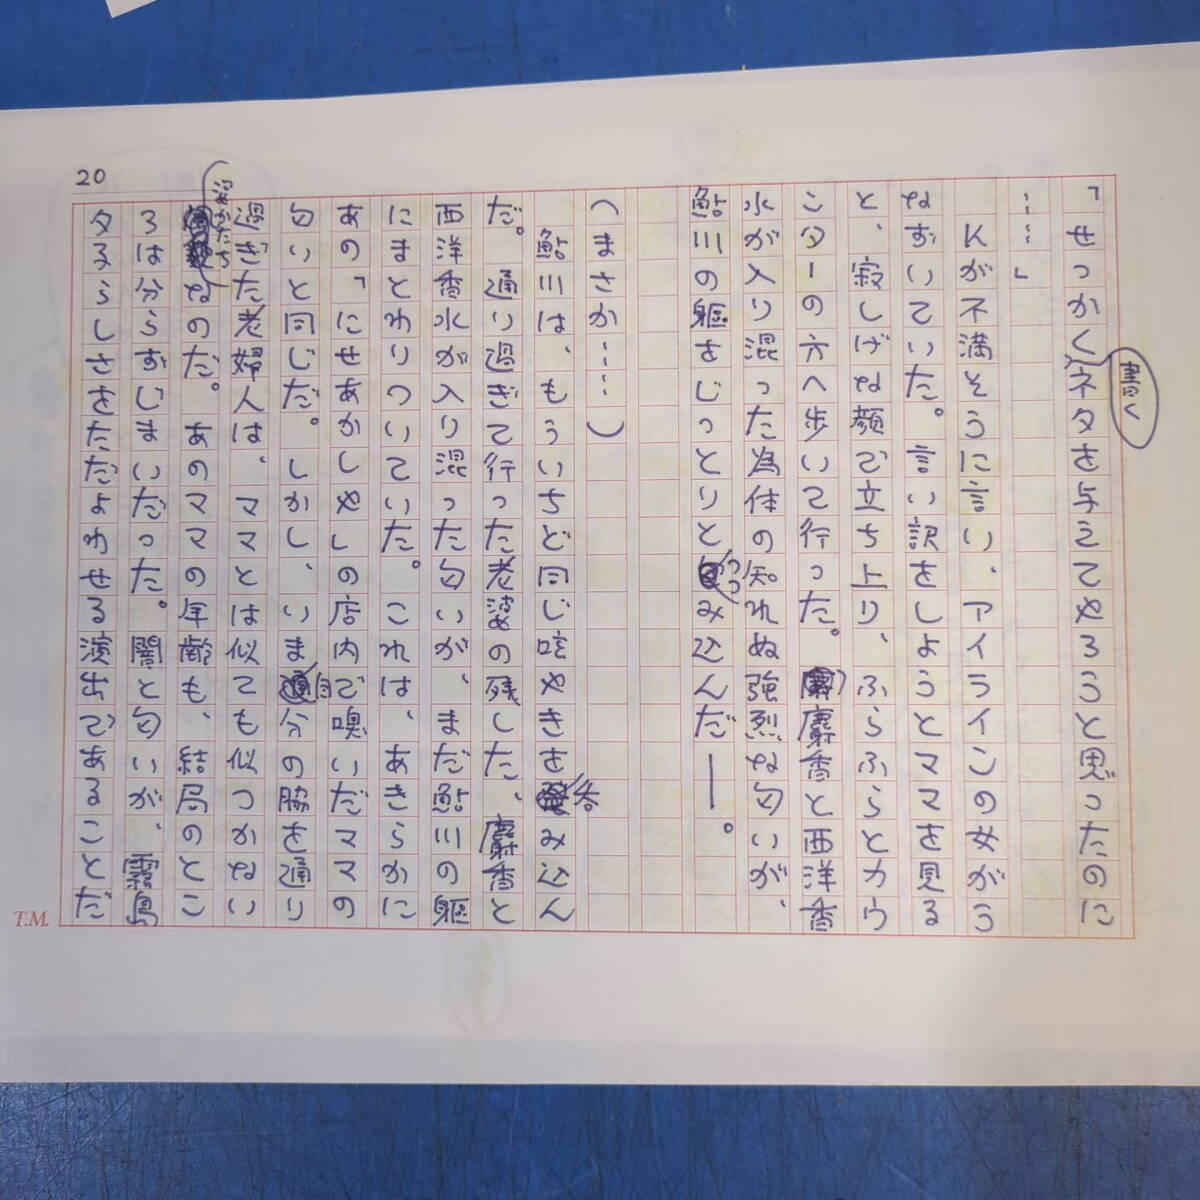 20
「せっかく書くネタを与えてやろうと思ったのに
……」
Kがが不満そうに言い、アイラインの女がう
なずいていた。言い訳をしようとママを見る
と、寂しげな顔で立ち上り、ふらふらとカウ
ンターの方へ歩いて行った。麝香と西洋香
水が入り混った為体の知れぬ強烈な匂いが、
鮎川の躯をじっとりとつつみ込んだ――。
（まさか……）
鮎川は、もういちど同じ呟やきを呑み込ん
だ。通り過ぎて行った老婆の残した、麝香と
西洋香水が入り混った匂いが、まだ鮎川の躯
にまとわりついていた。これは、あきらかに
あの「にせあかしや」の店内で嗅いだママの
匂いと同じだ。しかし、いま自分の脇を通り
過ぎた老婦人は、ママとは似ても似つかない
姿かたちなのだ。あのママの年齢も、結局のとこ
ろは分らずじまいだった。闇と匂いが、霧島
夕子らしさをただよわせる演出であることだ
T.M.